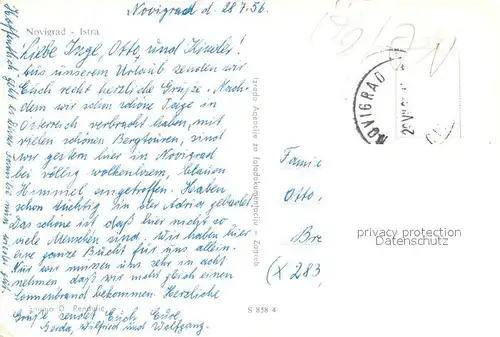 Novigrad d. 28.7.56.
Novigrad - Istra
Liebe Inge, Otto, und Kinder!
Aus unserem Urlaub senden wir
Euch recht herzliche Grüße. Nach-
dem wir schon schöne Tage in
Österreich verbracht haben, mit
vielen schönen Bergtouren, sind
wir gestern hier in Novigrad
bei völlig wolkenlosem, blauen
Himmel angetroffen. Haben
schon tüchtig in der Adria gebadet
Das schöne ist, daß hier nicht so
viele Menschen sind. Wir haben hier
eine ganze Bucht für uns allein.
Nur wir müssen uns sehr in acht
nehmen daß wir nicht gleich einen
Sonnenbrand bekommen. Herzliche
Grüße sendet Euch Eure
Gerda, Wilfried und Wolfgang.
Hoffentlich geht es
Izrada Agencije za fotodokumentaciju - Zagreb
NOVIGRAD
Familie
Otto,
Bre
(X 283
privacy protection
Datenschutz
S 838 4